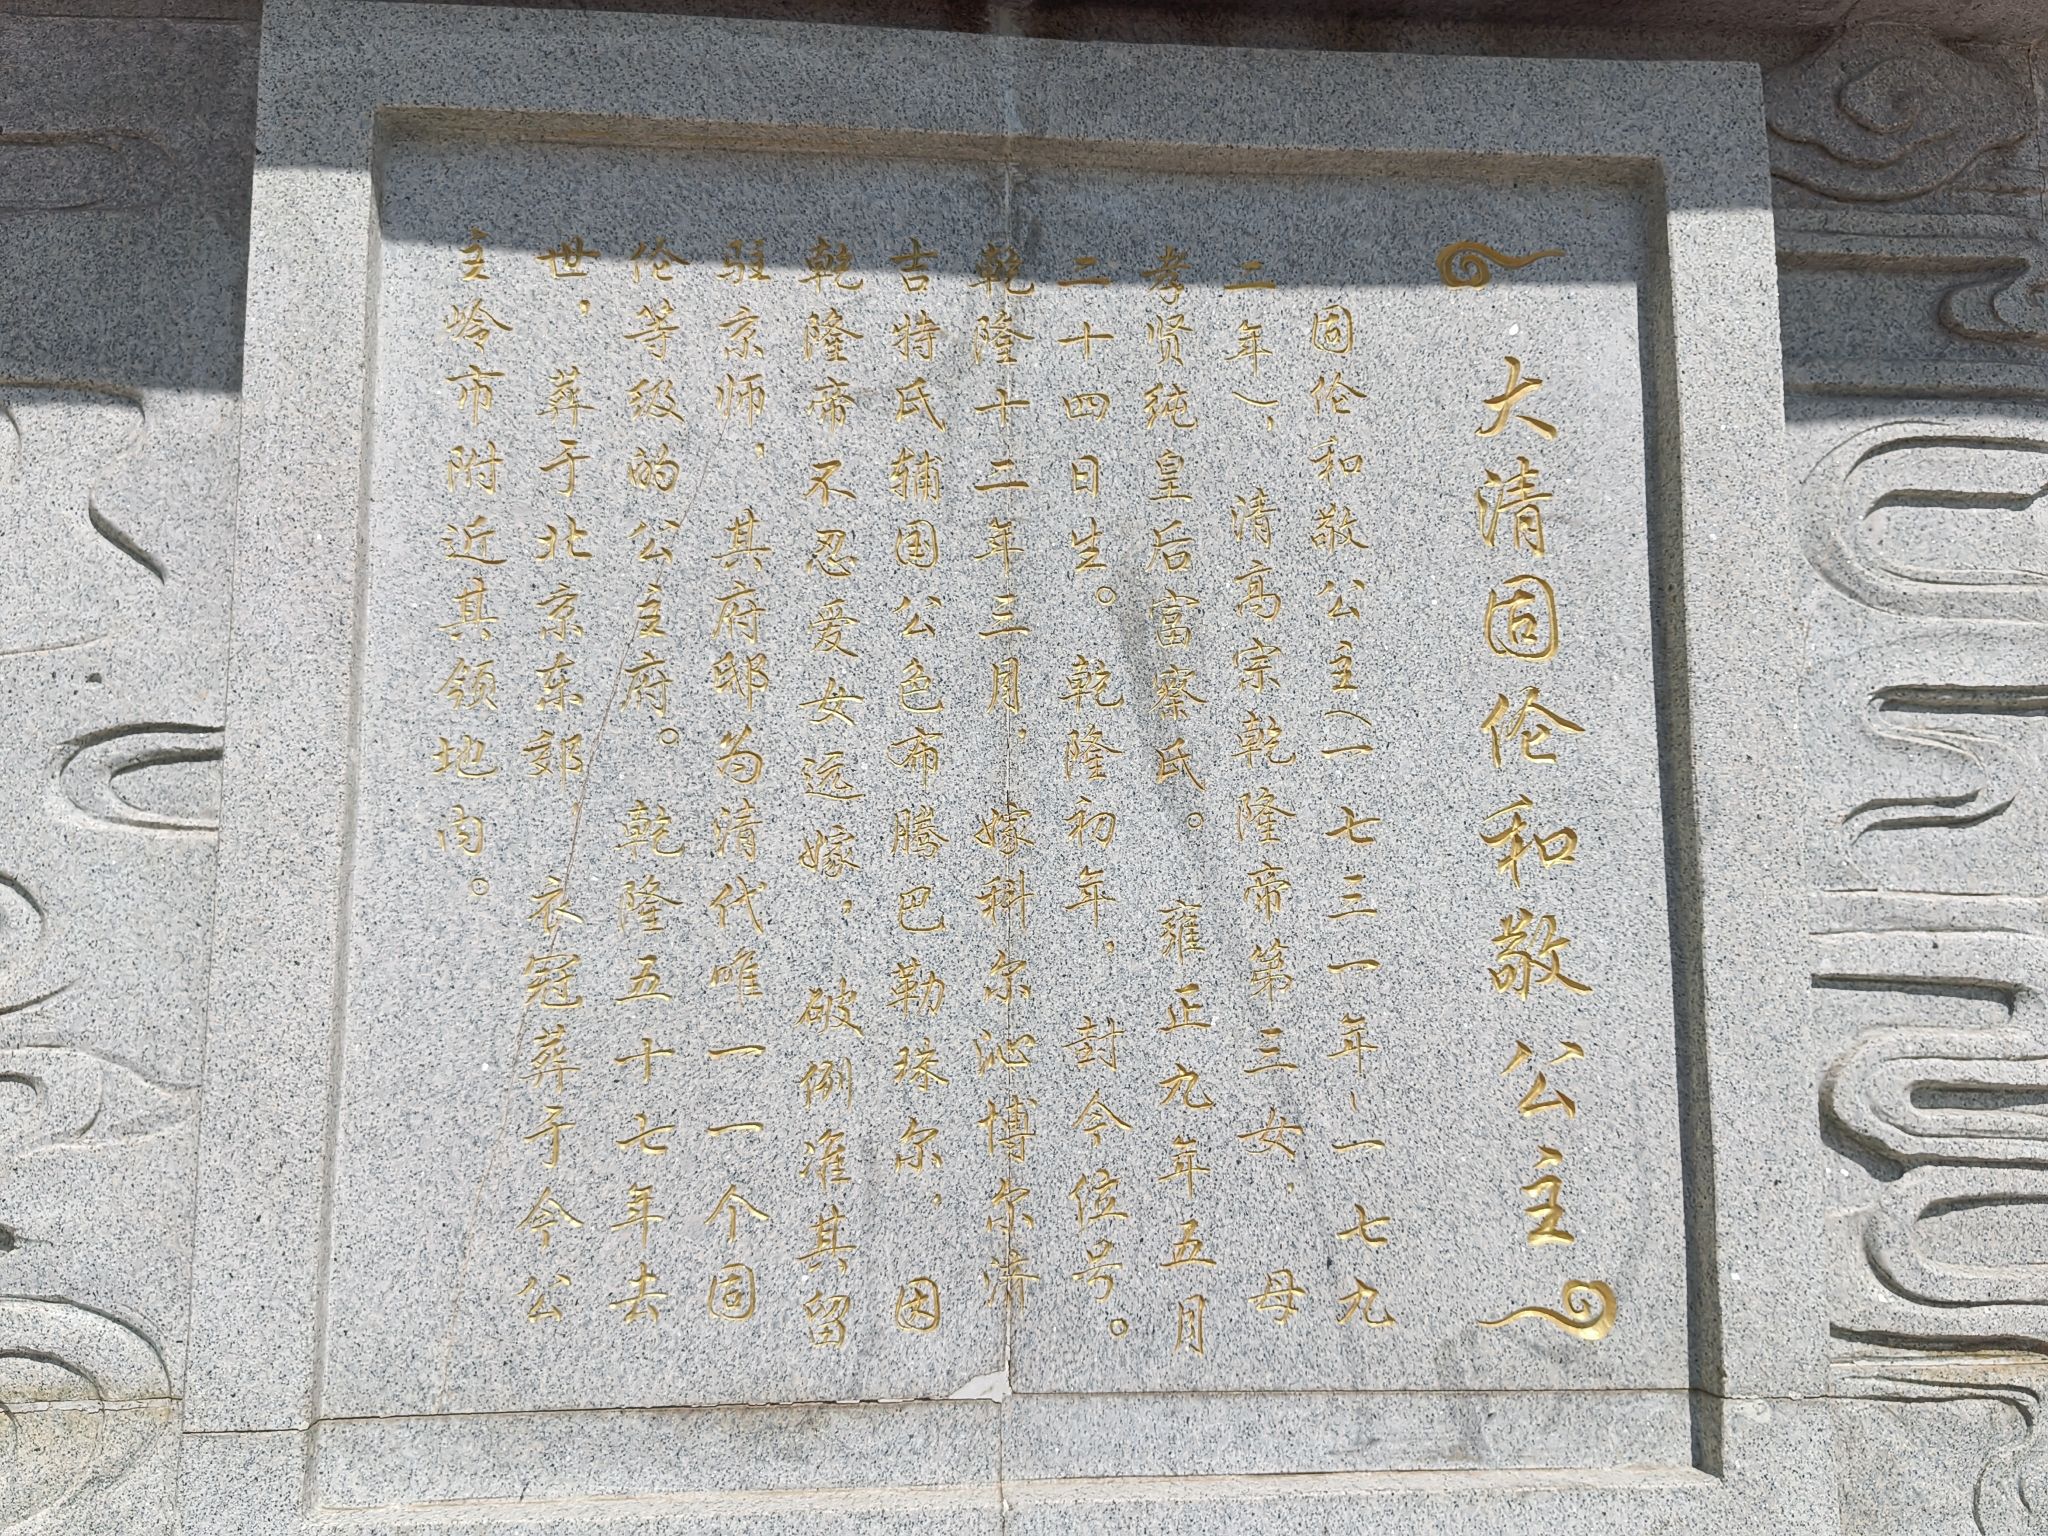 大清固伦和敬公主
固伦和敬公主(一七三一年-一七九
二年),清高宗乾隆帝第三女,母
孝贤纯皇后富察氏。雍正九年五月
二十四日生。乾隆初年,封今位号。
乾隆十二年三月,嫁科尔沁博尔济
吉特氏辅国公色布腾巴勒珠尔,因
乾隆帝不忍爱女远嫁,破例准其留
驻京师,其府邸为清代唯一一个固
伦等级的公主府。乾隆五十七年去
世,葬于北京东郊,衣冠葬于今公
主岭市附近其领地内。